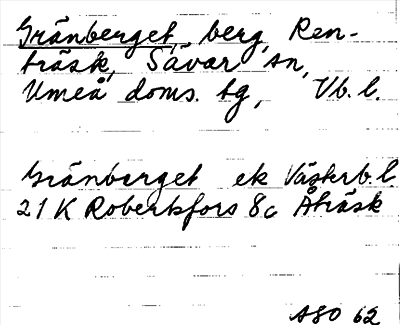 Gränberget, berg, Ren-
träsk, Sävar sn,
Umeå doms. tg, Vb. l.
Gränberget ek Västerb. l
21 K Robertsfors 8c Åträsk
ASO 62